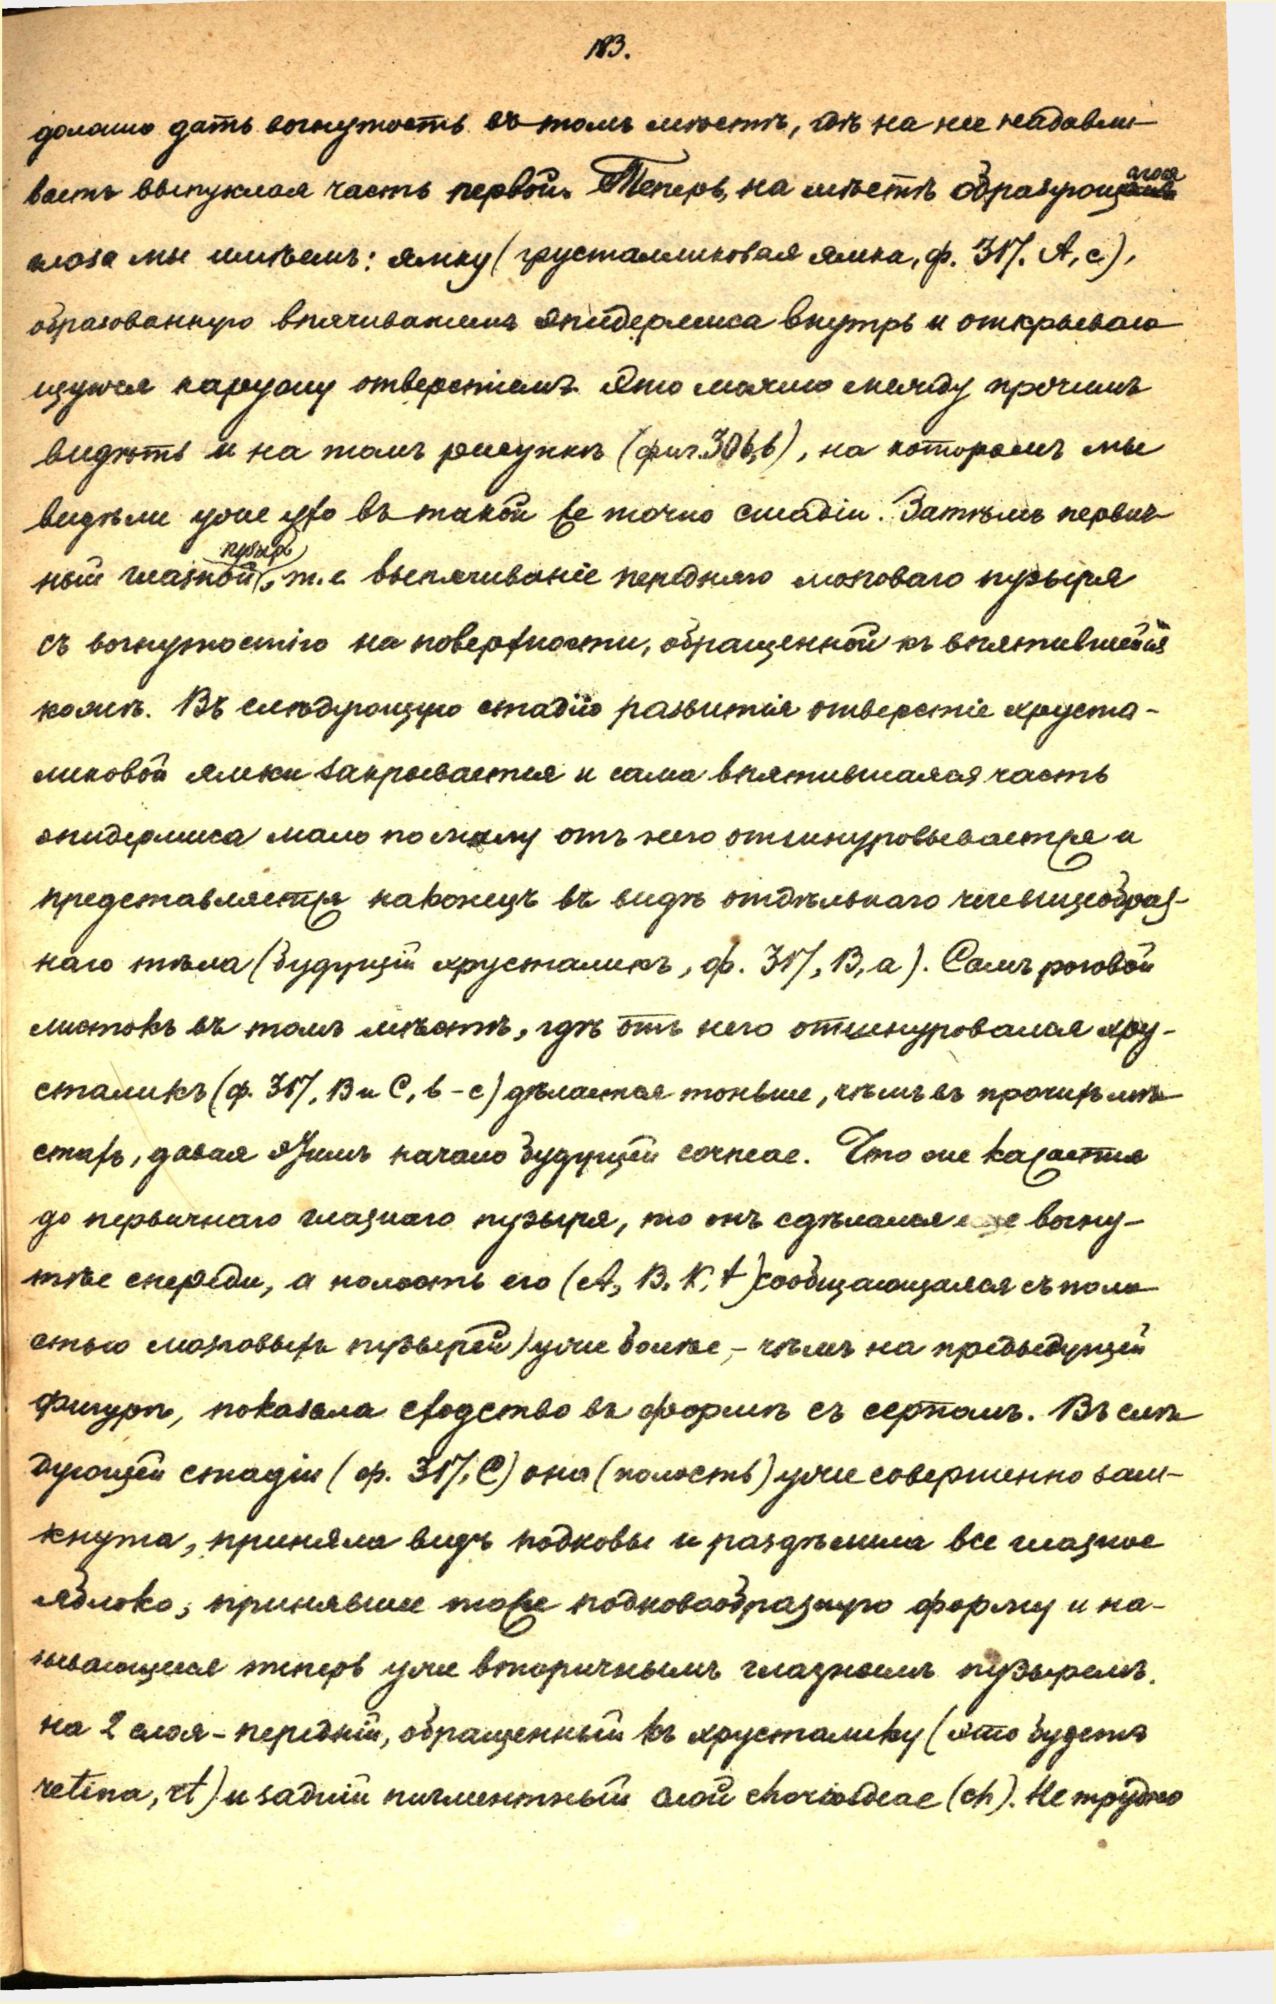 183.
должно дать вогнутость въ томъ мѣстѣ, гдѣ на нее надавли-
ваетъ выпуклая часть первой. Теперь, на мѣстѣ образующагося
глаза мы имѣемъ: ямку (хрусталиковая ямка, ф. 317. А, с),
образованную впячиваніемъ эпидермиса внутрь и открываю-
щуюся наружу отверстіемъ. Это можно между прочимъ
видѣть и на томъ рисункѣ (фиг. 306, b), на которомъ мы
видѣли ухо въ такой же точно стадіи. Затѣмъ первич-
ный глазной пузырь, т.е. выпячиваніе передняго мозговаго пузыря
съ вогнутостію на поверхности, обращенной къ впятившейся
кожѣ. Въ слѣдующую стадію развитія отверстіе хруста-
ликовой ямки закрывается и сама впятившаяся часть
эпидермиса мало по малу отъ него отшнуровывается и
представляется наконецъ въ видѣ отдѣльнаго чечевицеобраз-
наго тѣла (будущій хрусталикъ, ф. 317, В, а). Самъ роговой
листокъ въ томъ мѣстѣ, гдѣ отъ него отшнуровался хру-
сталикъ (ф. 317, В и С, b-c) дѣлается тоньше, чѣмъ въ прочихъ мѣ-
стахъ, давая этимъ начало будущей corneae. Что же касается
до первичнаго глазнаго пузыря, то онъ сдѣлался еще вогну-
тѣе спереди, а полость его (А, В. К, t) сообщающаяся съ поло-
стью мозговыхъ пузырей) уже болѣе, – чѣмъ на предыдущей
фигурѣ, показала сходство въ формѣ съ серпомъ. Въ слѣ-
дующей стадіи (ф. 317, С) она (полость) уже совершенно зам-
кнута, приняла видъ подковы и раздѣлила все глазное
яблоко, принявшее тоже подковообразную форму и на-
зывающееся теперь уже вторичнымъ глазнымъ пузыремъ.
на 2 слоя – передній, обращенный къ хрусталику (это будетъ
retina, rt) и задній пигментный слой chorioideae (ch). Не трудно